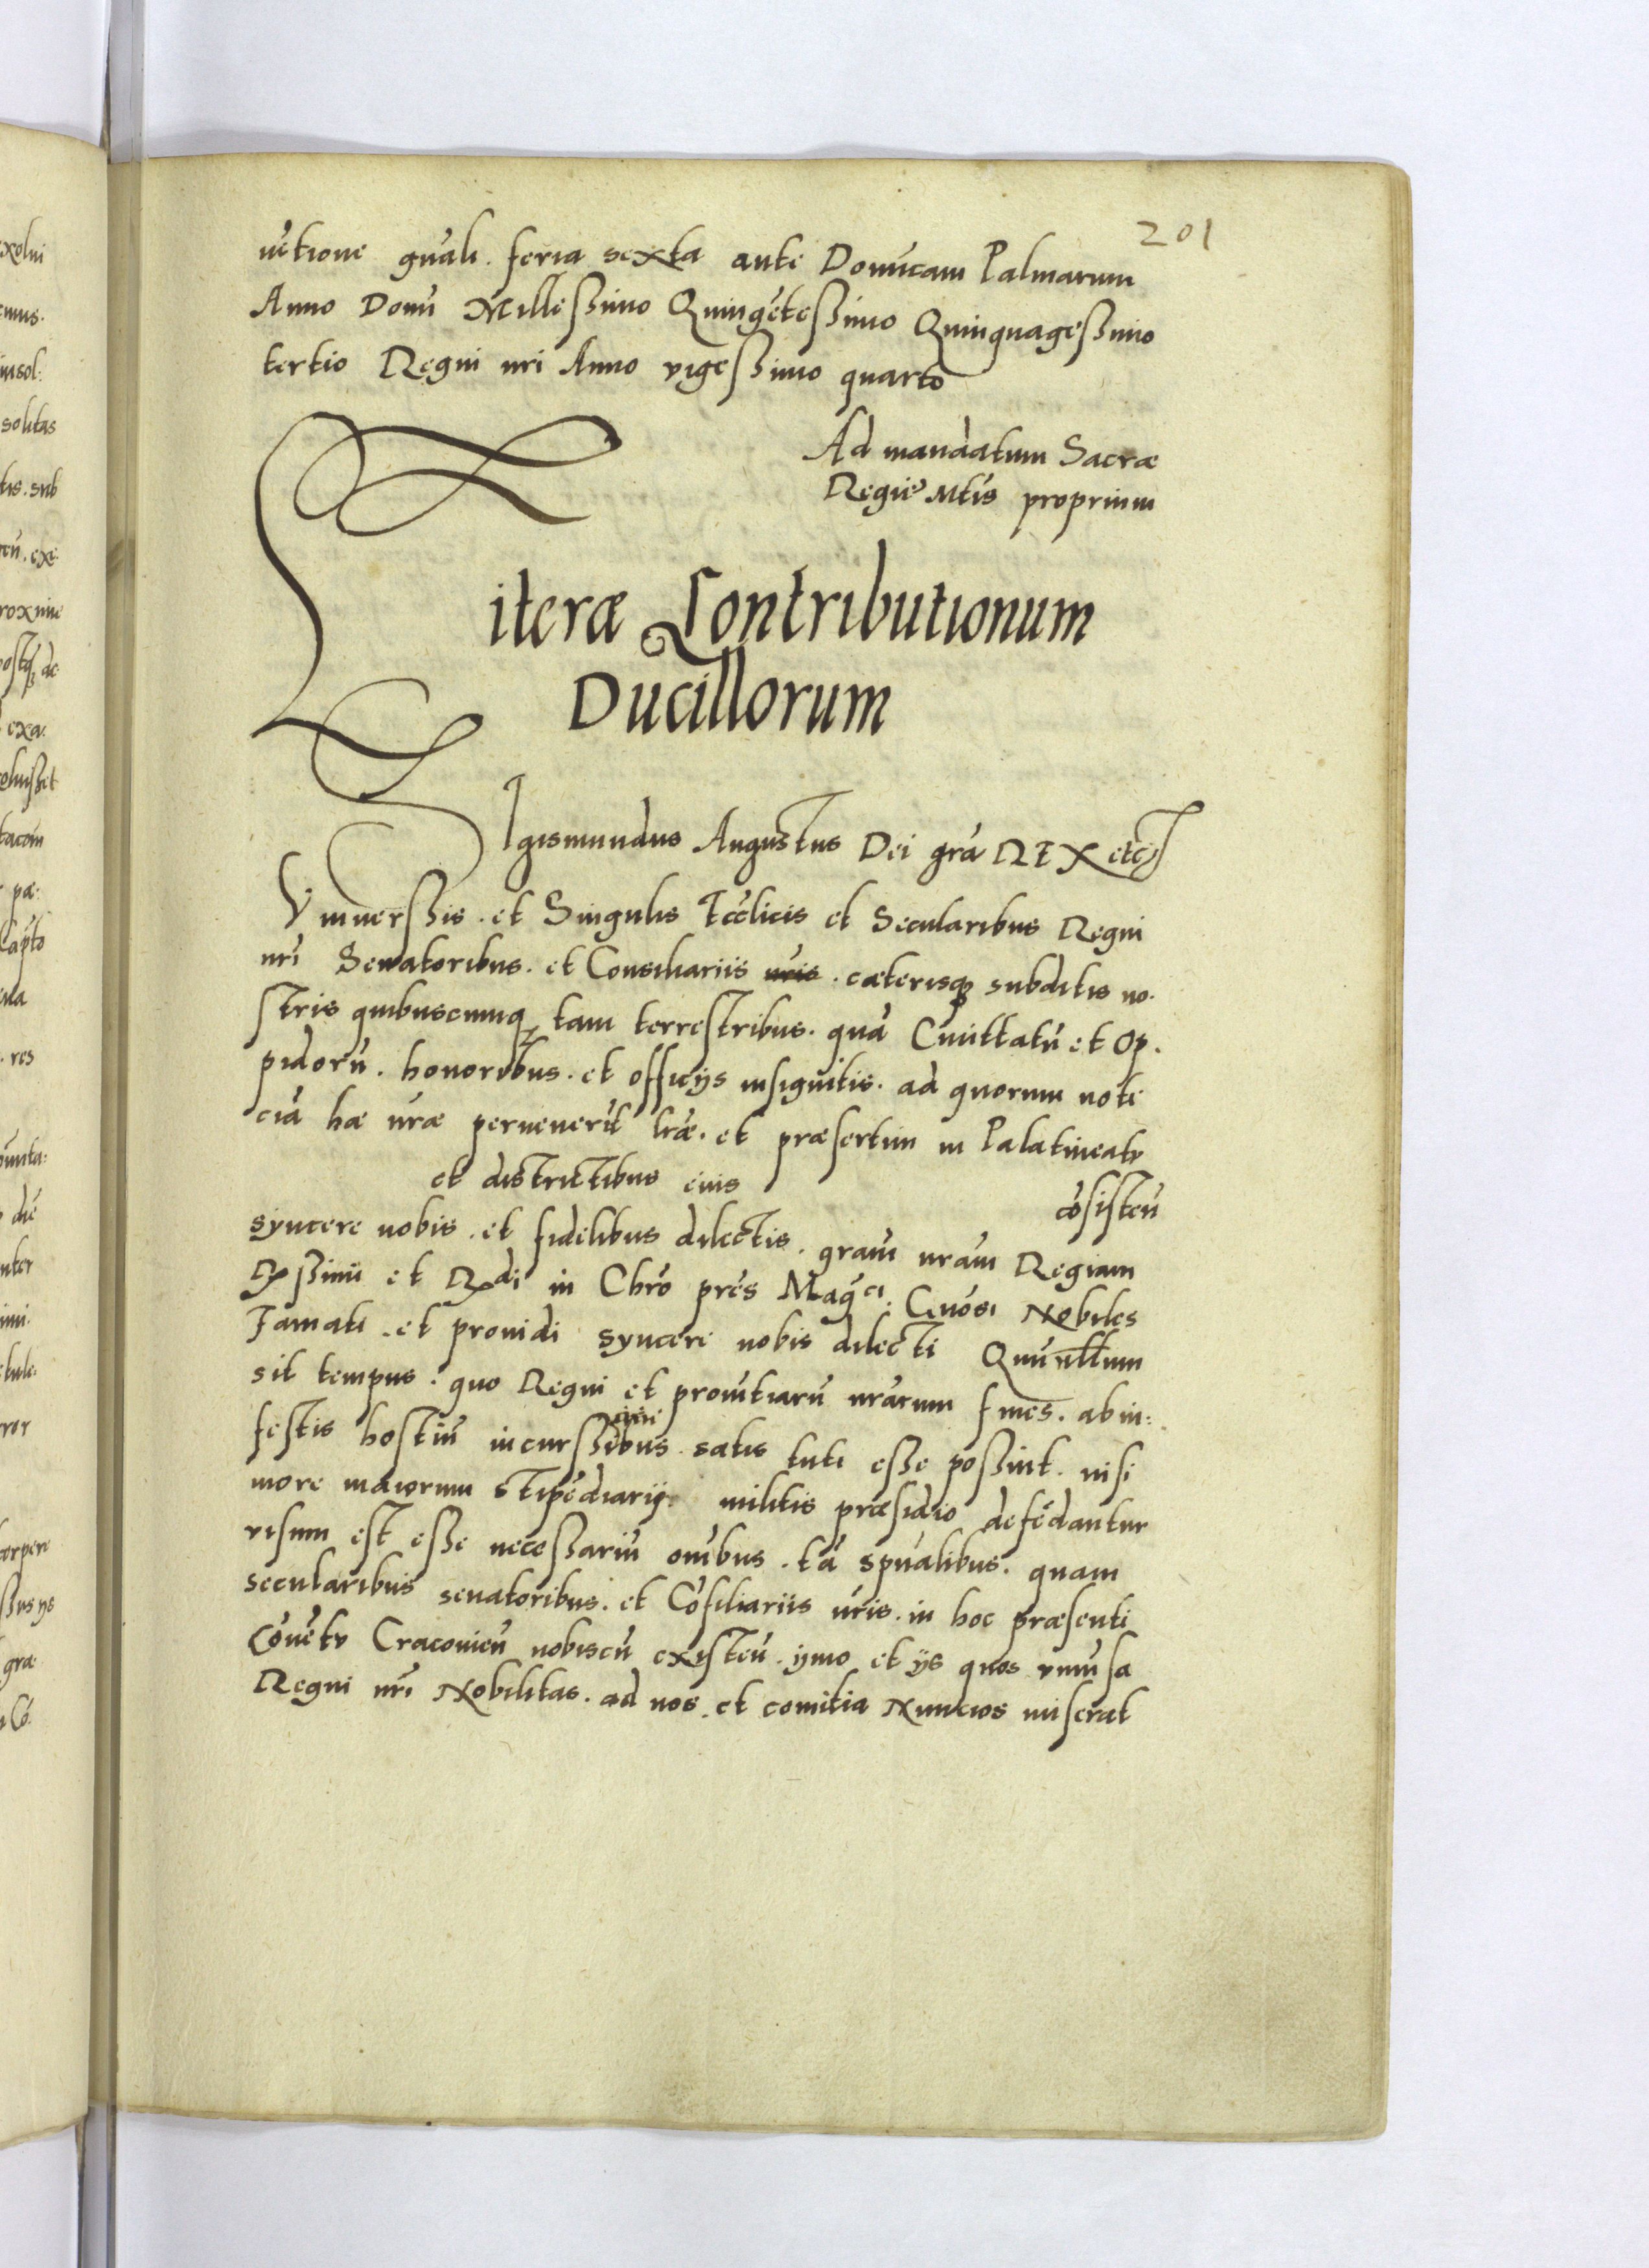 201
ue͂tione gn̄ali. feria sexta ante Domīcam Palmarum
Anno Domī Millessimo Quinge͂tessimo Quinquagessimo
tertio Regni nr̄i Anno vigessimo quarto
Ad mandatum Sacræ
Regiæ Mtis proprium
Literæ Contributionum
Ducillorum
Sigismundus Augustus Dei gr̄a REX etc
Vniuerssis. et Singulis Eccl̄icis et Secularibus Regni
nr̄i Senatoribus. et Consiliariis nr̄is. cæterisq3 subditis no.
stris quibuscunq3 tam terrestribus. quā Ciuittatū et Op.
pidorū. honoribus. et officijs insignitis. ad quorum noti
ciā hæ nr̄æ peruenerīt lr̄æ. et præsertim in Palatineatu
et districtibus eius cōsisteñ
syncere nobis. et fidelibus dilectis. gram̄ nram̄ Regiam
Rssimi et Rdi in Chr̄o pr̄es Mag̃ci. Gn̄osi Nobiles
Famati. et prouidi syncere nobis dilecti Quū nullum
sit tempus. quo Regni et prouītiarū nr̄arum fines. ab in:
festis hostiū incurssionibus satis tuti esse possint. nisi
more maiorum stipe͂diarij militis præsidio defe͂dantur
visum est esse necessariū om̄ibus. tā spūalibus. quam
secularibus senatoribus. et Cōsiliariis nr̄is. in hoc præsenti
Cōue͂tu Cracouieñ nobiscū existeñ. ymo et ijs quos vniūsa
Regni nr̄i Nobilitas. ad nos. et comitia Nuncios miserat